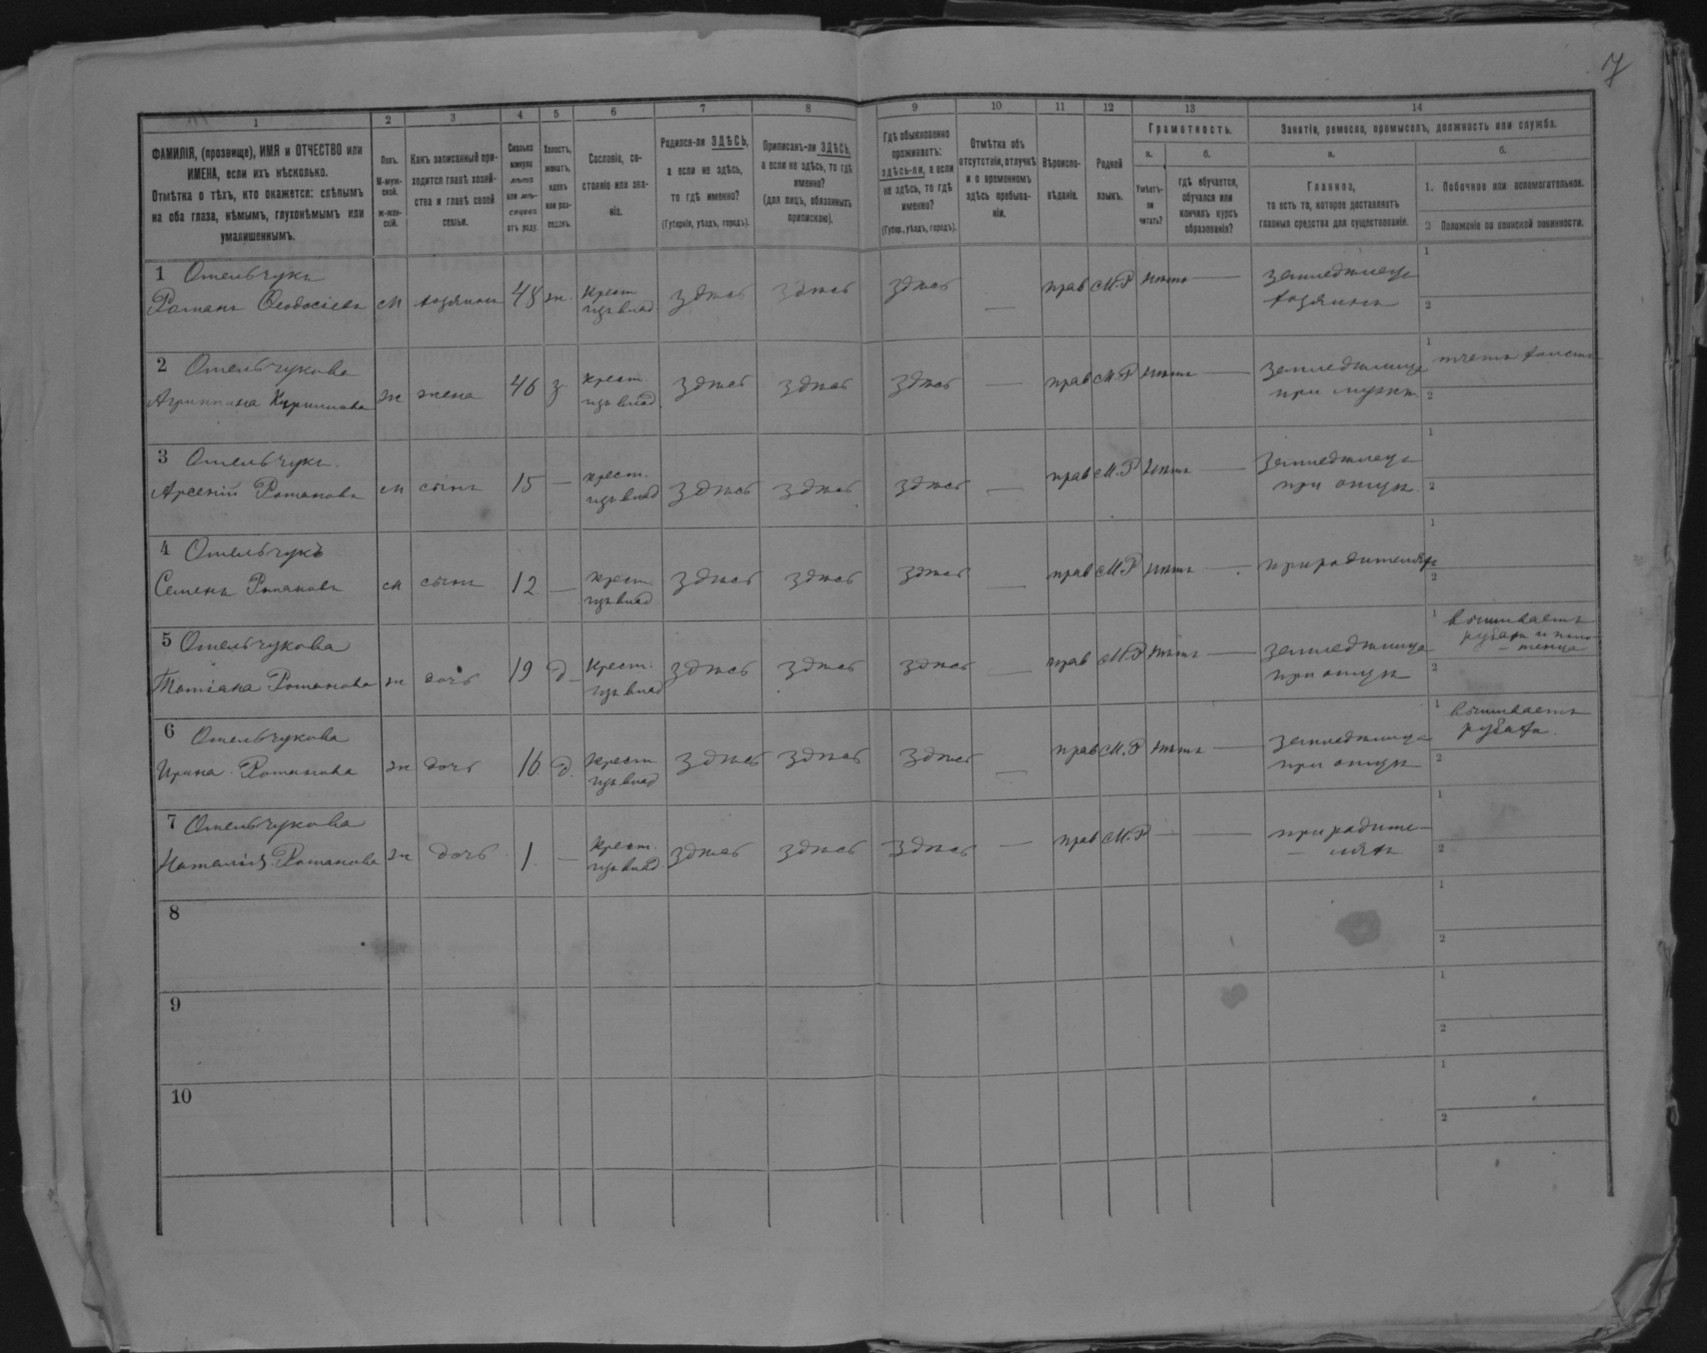 7
1 2 3 4 5 6 7 8 9 10 11 12 13 14
ФАМИЛІЯ, (прозвище), ИМЯ и ОТЧЕСТВО или
ИМЕНА, если ихъ нѣсколько.
Отмѣтка о тѣхъ, кто окажется: слѣпымъ
на оба глаза, нѣмымъ, глухонѣмымъ или
умалишеннымъ.
Полъ.
М-муж-
ской.
ж-жен-
скій.
Какъ записанный при-
ходится главѣ хозяй-
ства и главѣ своей
семьи.
Сколько
минуло
лѣтъ
или мѣ-
сяцевъ
отъ роду.
Холостъ,
женатъ,
вдовъ
или раз-
веденъ.
Сословіе, со-
стояніе или зва-
ніе.
Родился-ли ЗДѢСЬ,
а если не здѣсь,
то гдѣ именно?
(Губернія, уѣздъ, городъ).
Приписанъ-ли ЗДѢСЬ,
а если не здѣсь, то гдѣ
именно?
(для лицъ, обязанныхъ
припискою).
Гдѣ обыкновенно
проживаетъ:
здѣсь-ли, а если
не здѣсь, то гдѣ
именно?
(Губер., уѣздъ, городъ).
Отмѣтка объ
отсутствіи, отлучкѣ
и о временномъ
здѣсь пребыва-
ніи.
Вѣроиспо-
вѣданіе.
Родной
языкъ.
Грамотность.
а.
Умѣетъ-
ли
читать?
б.
гдѣ обучается,
обучался или
кончилъ курсъ
образованія?
Занятіе, ремесло, промыселъ, должность или служба.
а.
Главное,
то есть то, которое доставляетъ
главныя средства для существованія.
б.
1. Побочное или вспомогательное.
2 Положеніе по воинской повинности.
1 Омельчукъ
Романъ Ѳеодосіевъ м хозяинъ 48 ж. Крест. изъ влад здѣсь здѣсь здѣсь — прав М.Р нѣтъ — земледѣлецъ хозяинъ 1 2
2 Омельчукова
Агриппина Кириллова ж жена 46 з крест. изъ влад здѣсь здѣсь здѣсь — прав М.Р нѣтъ — земледѣлица при мужѣ 1 ткетъ холсты 2
3 Омельчукъ
Арсеній Романовъ м сынъ 15 — крест. изъ влад здѣсь здѣсь здѣсь — прав М.Р нѣтъ — земледѣлецъ при отцѣ 1 2
4 Омельчукъ
Семенъ Романовъ м сынъ 12 — крест. изъ влад здѣсь здѣсь здѣсь — прав М.Р нѣтъ — при родителяхъ 1 2
5 Омельчукова
Татіана Романова ж дочь 19 д Крест. изъ влад здѣсь здѣсь здѣсь — прав М.Р нѣтъ — земледѣлица при отцѣ 1 вышиваетъ рубахи и поло-
тенца 2
6 Омельчукова
Ирина Романова ж дочь 16 д. Крест изъ влад здѣсь здѣсь здѣсь — прав М.Р нѣтъ — земледѣлица при отцѣ 1 вышиваетъ рубахи. 2
7 Омельчукова
Наталія Романова ж дочь 1 — Крест. изъ влад. здѣсь здѣсь здѣсь — прав М.Р — — при родите-
ляхъ 1 2
8 1 2
9 1 2
10 1 2